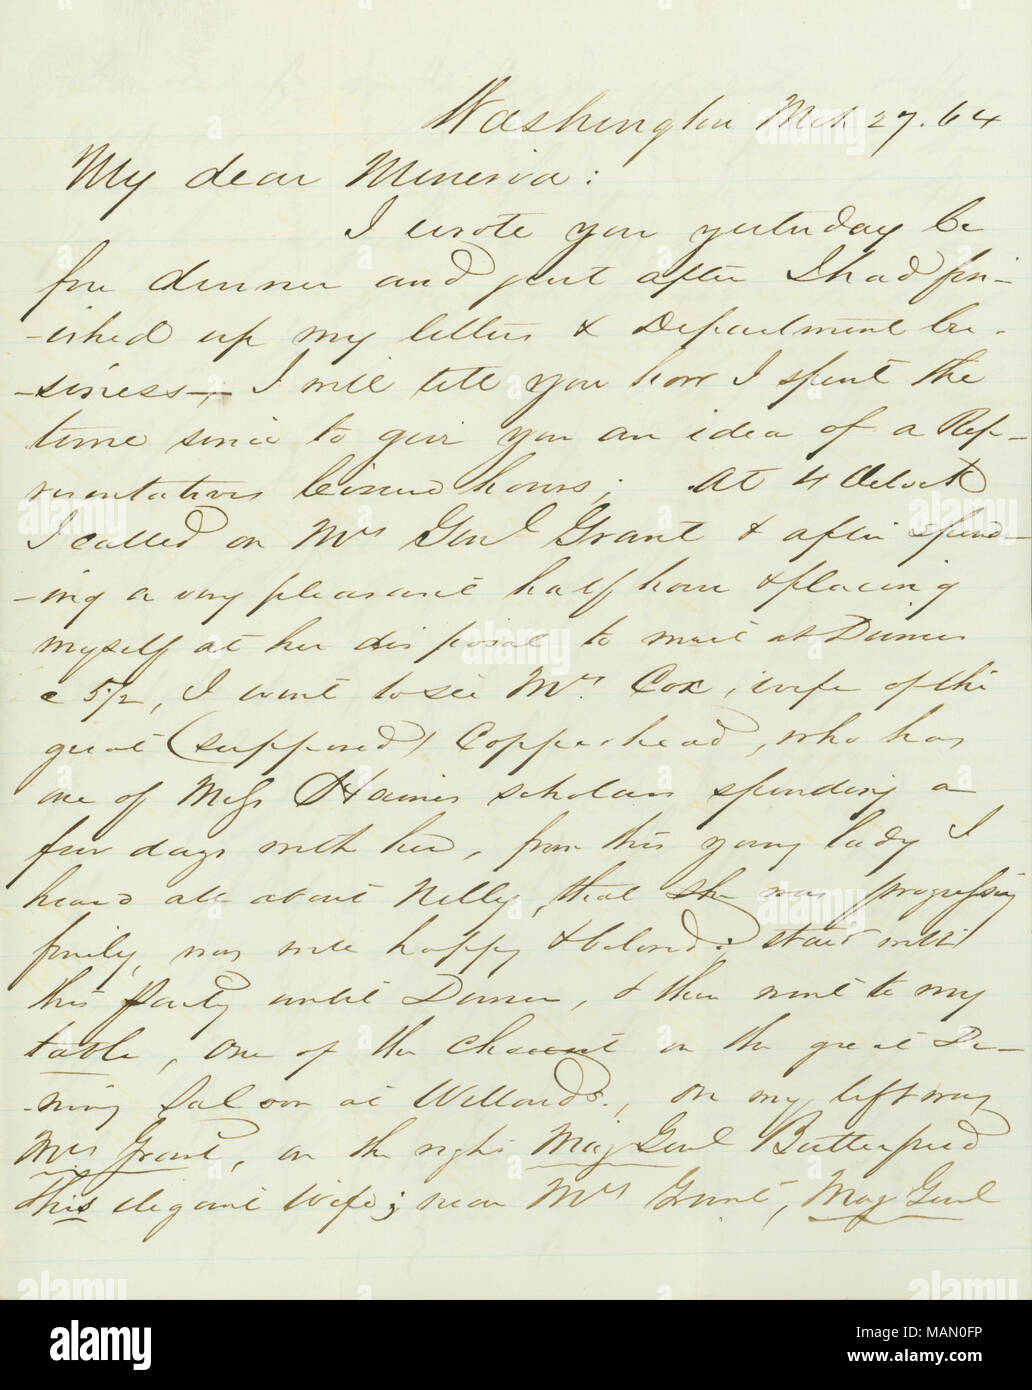 Washington Mch 27. 64
My dear Minerva:
I wrote you yesterday be
fore dinner and just after I had fin-
-ished up my letters & Department bu-
-siness-, I will tell you how I spent the
time since to give you an idea of a Rep-
resentatives leisure hours; At 4 Oclock
I called on Mrs Genl Grant & after spend-
-ing a very pleasant half hour & placing
myself at her disposal to meet at Dinner
@ 5 1/2, I went to see Mrs. Cox, wife of the
great (supposed) Copperhead, who has
one of Miss Haines scholars spending a
few days with her, from this young lady I
heard all about Nelly, that she was progressing
finely, was well happy & beloved; staid with
this party until Dinner, & then went to my
table, one of the choicest in the great Di-
-ning Saloon at Willards., on my left was
Mrs Grant, on the right Maj Genl Butterfield
& his elegant Wife; near Mrs Grant, Maj Genl
alamy
Image ID: MAN0FP
www.alamy.com